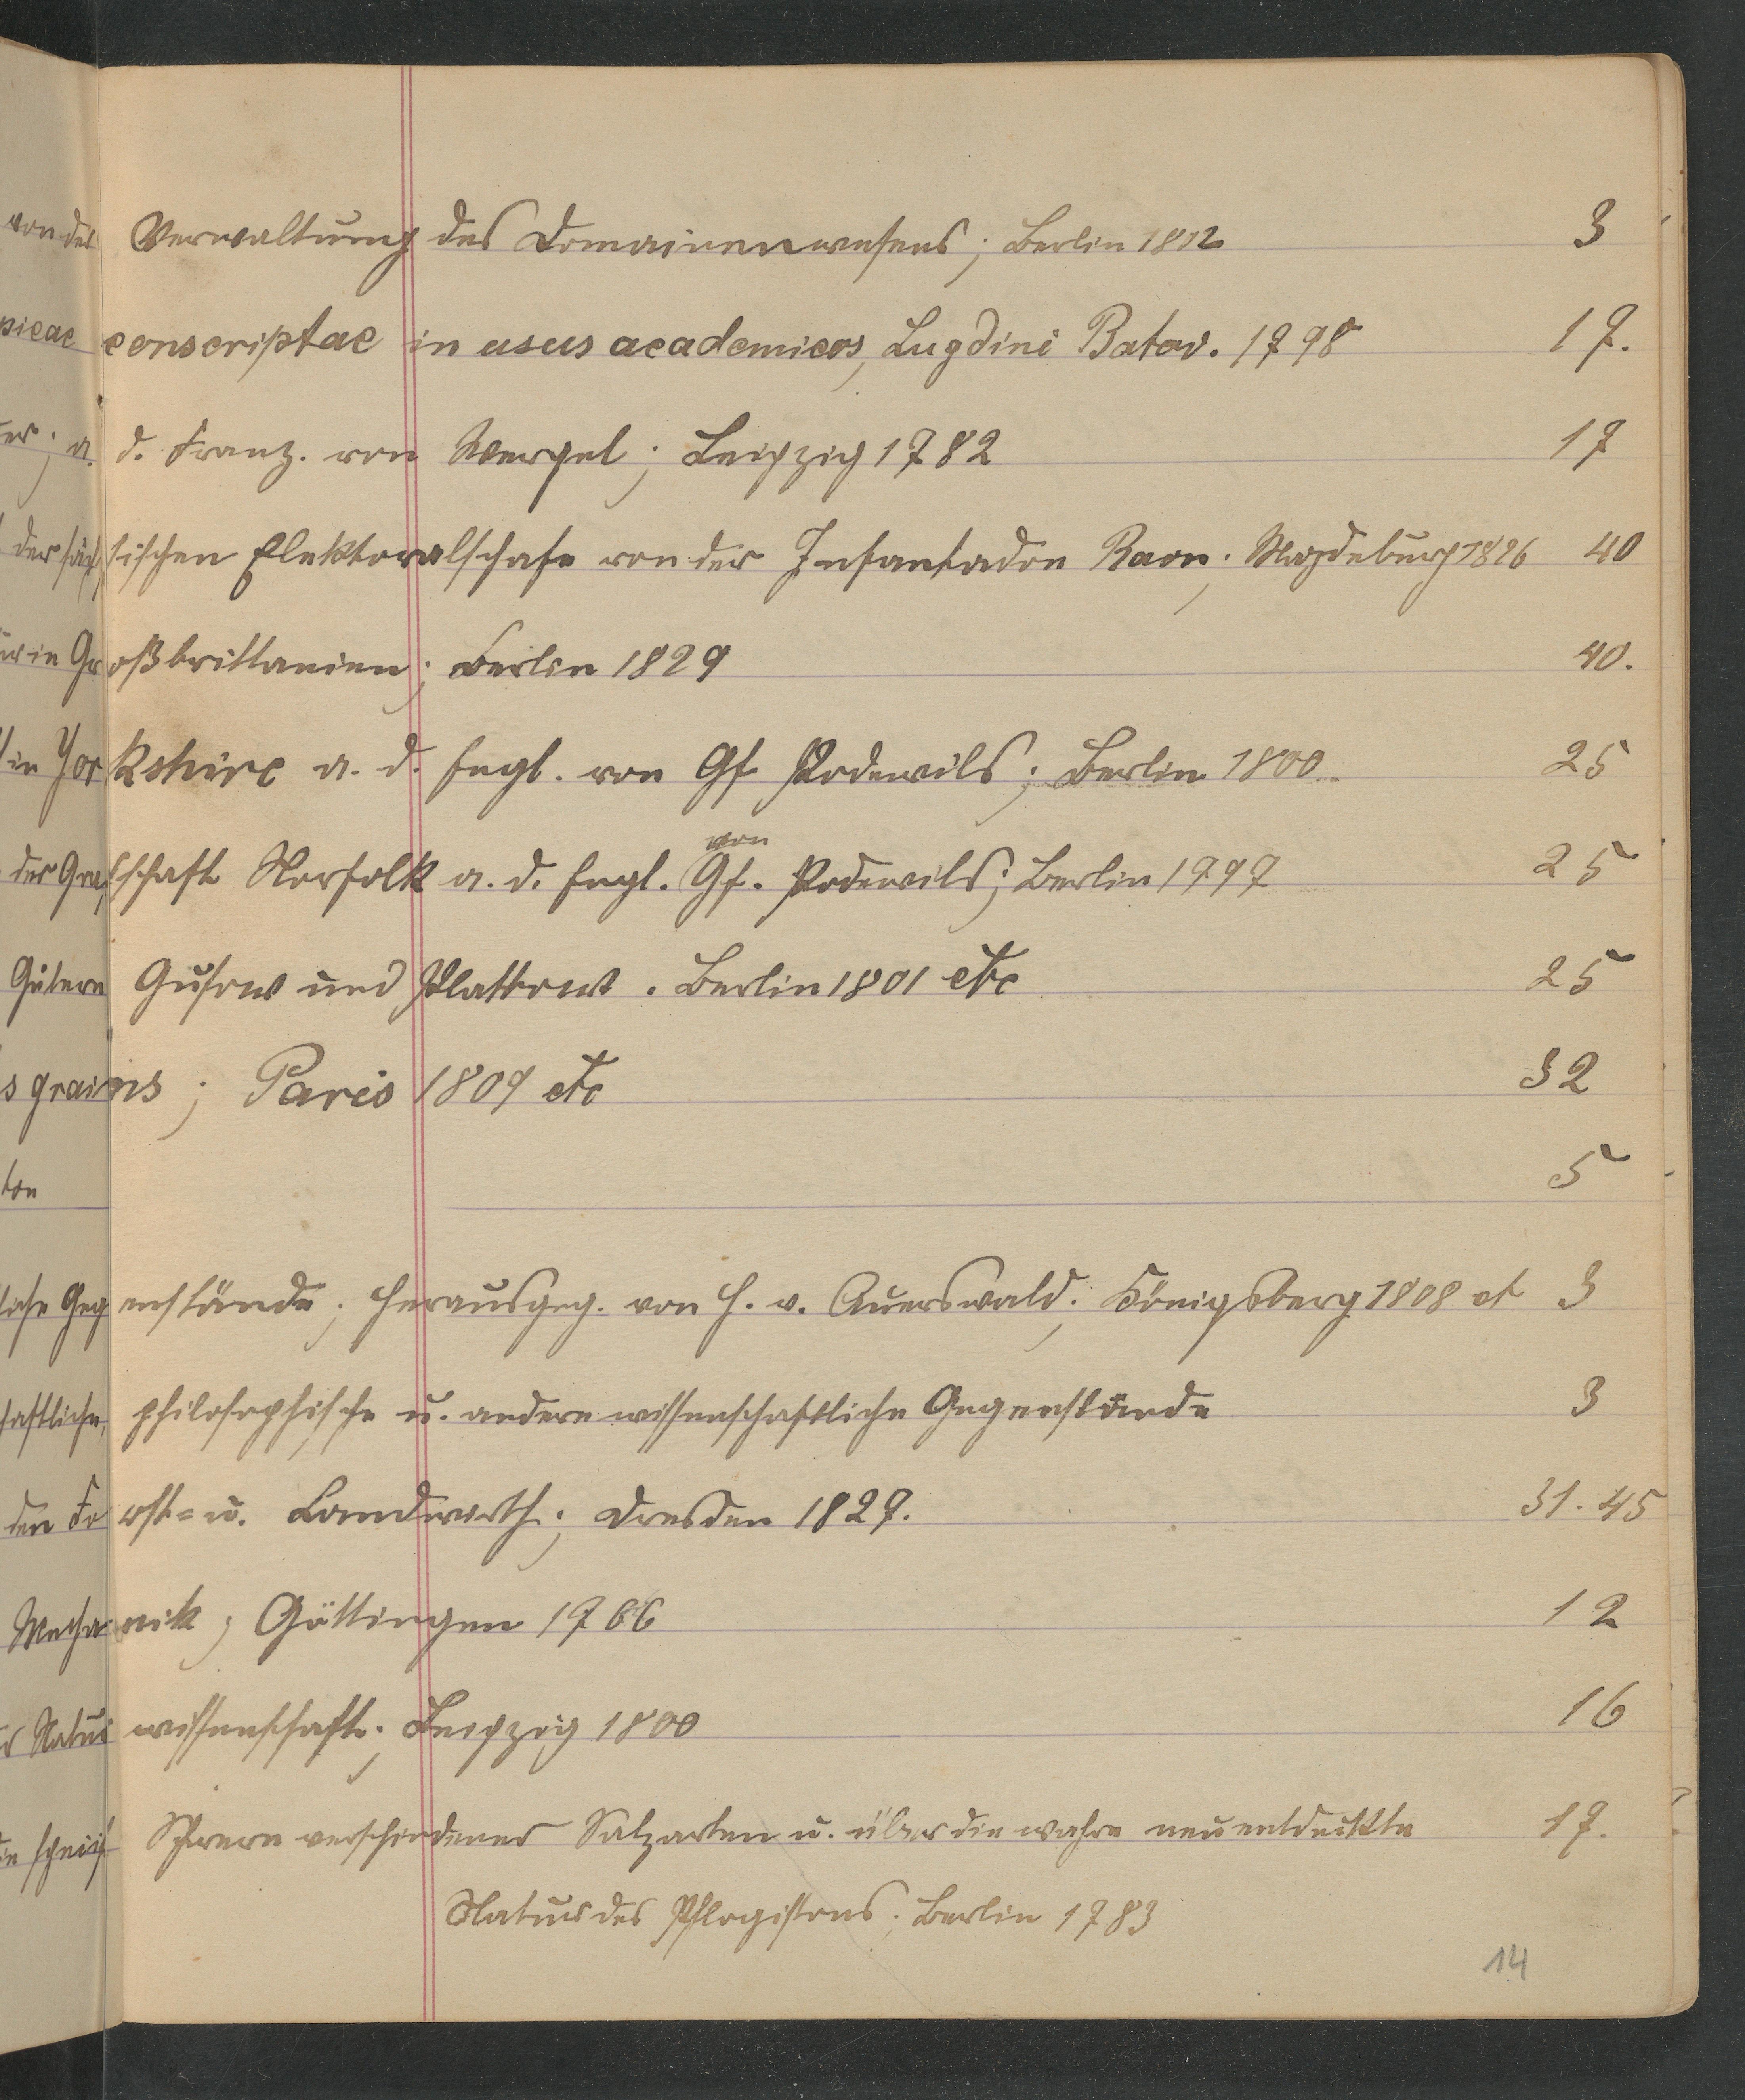 von der Verwaltung des Domainenwesens; Berlin 1802 3
picae conscriptae in usus academicos, Lugdini Batav. 1798 17.
er; a. d. Franz. von Wenzel; Leipzig 1782 17
der sächsischen Elektoralschafe von der Infantadon Raçe; Magdeburg 1826 40
ür in Großbrittanien; Berlin 1829 40.
in Yorkshire a. d. Engl. von Gf Podewils; Berlin 1800 25
der Grafschaft Norfolk a. d. Engl. von Gf. Podewils; Berlin 1797 25
Gütern Gusow und Plattkow. Berlin 1801 etc 25
s grains; Paris 1809 etc 32
ton 5
liche Gegenstände; herausgeg. von H. v. Auerswald; Königsberg 1808 et 3
haftliche, philosophische u. andere wissenschaftliche Gegenstände 3
den Forst= u. Landwirth; Dresden 1827. 31. 45
Mechanik; Göttingen 1766 12
r Naturwissenschaft; Leipzig 1800 16
Sphären verschiedener Salzarten u. über die wahre neuentdeckte 17.
Natur des Phlogistons; Berlin 1783
14